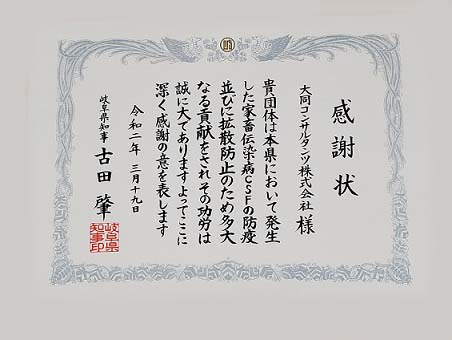 感謝状
大同コンサルタンツ株式会社 様
貴団体は本県において発生
した家畜伝染病CSFの防疫
並びに拡散防止のため多大
なる貢献をされその功労は
誠に大でありますよってここに
深く感謝の意を表します
令和二年 三月十九日
岐阜県知事 古田 肇
岐阜県
知事印